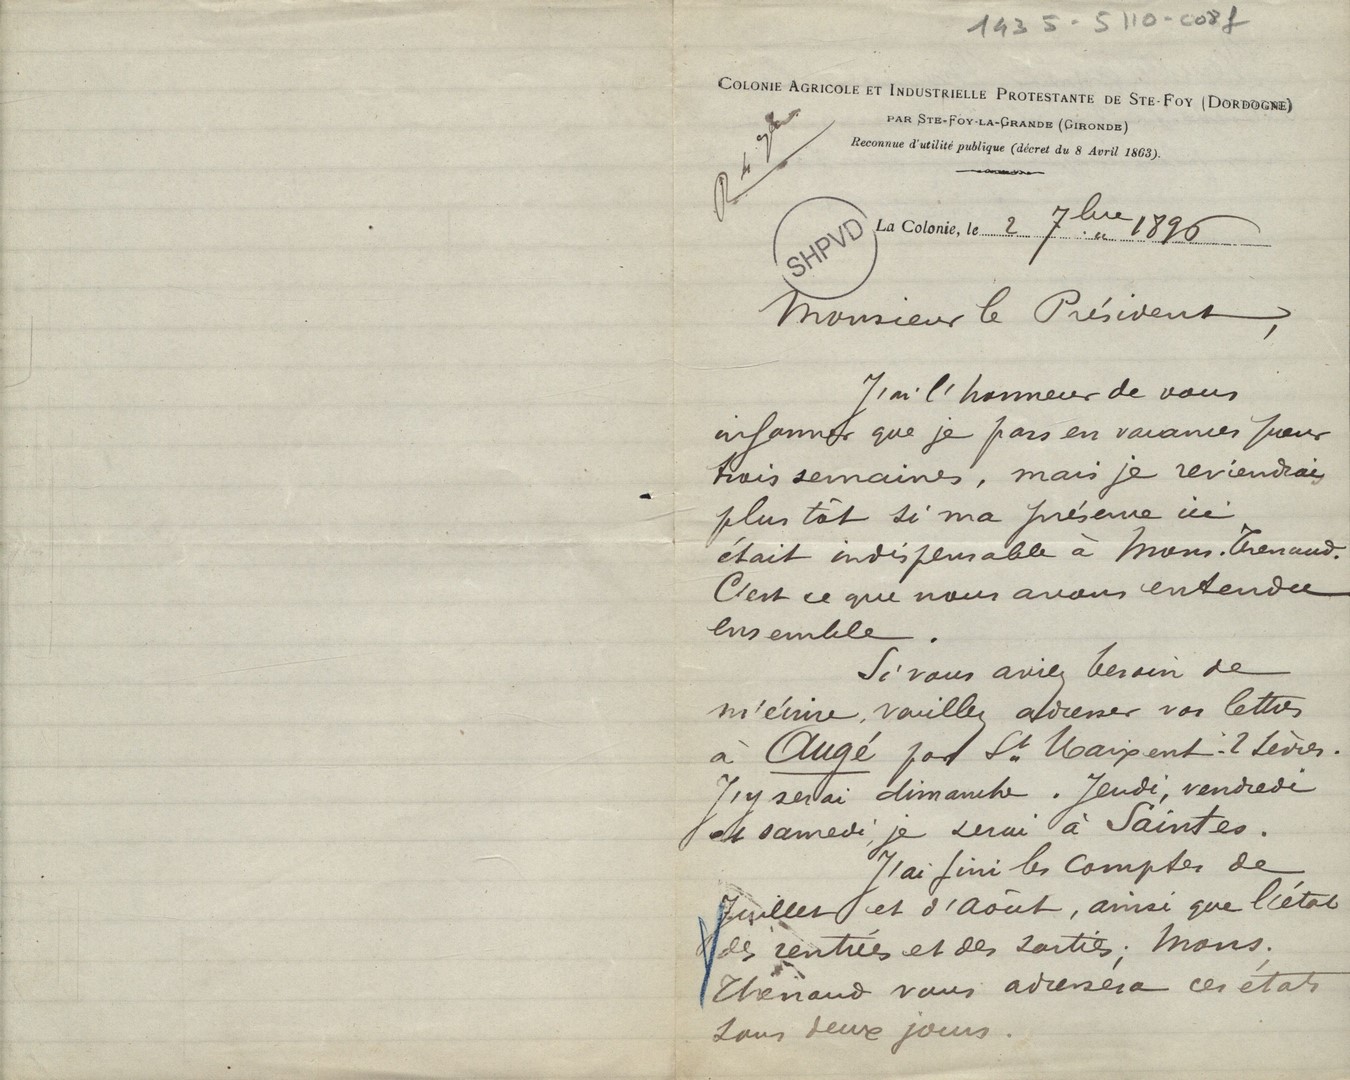 143 5 - 5110 - C08f
COLONIE AGRICOLE ET INDUSTRIELLE PROTESTANTE DE STE-FOY (DORDOGNE)
PAR STE-FOY-LA-GRANDE (GIRONDE)
Reconnue d'utilité publique (décret du 8 Avril 1863).
R 4 7bre
SHPVD
La Colonie, le 2 7bre 1896
Monsieur le Président,
J'ai l'honneur de vous
informer que je pars en vacances pour
trois semaines, mais je reviendrais
plus tôt si ma présence ici
était indispensable à Mons. Thenaud.
C'est ce que nous avons entendu
ensemble.
Si vous aviez besoin de
m'écrire, veuillez adresser vos lettres
à Augé par St Maixent. 2 Sèvres.
J'y serai dimanche. Jeudi, vendredi
et samedi, je serai à Saintes.
J'ai fini les comptes de
Juillet et d'Août, ainsi que l'état
des rentrées et des sorties; Mons.
Thénaud vous adressera ces états
sous deux jours.